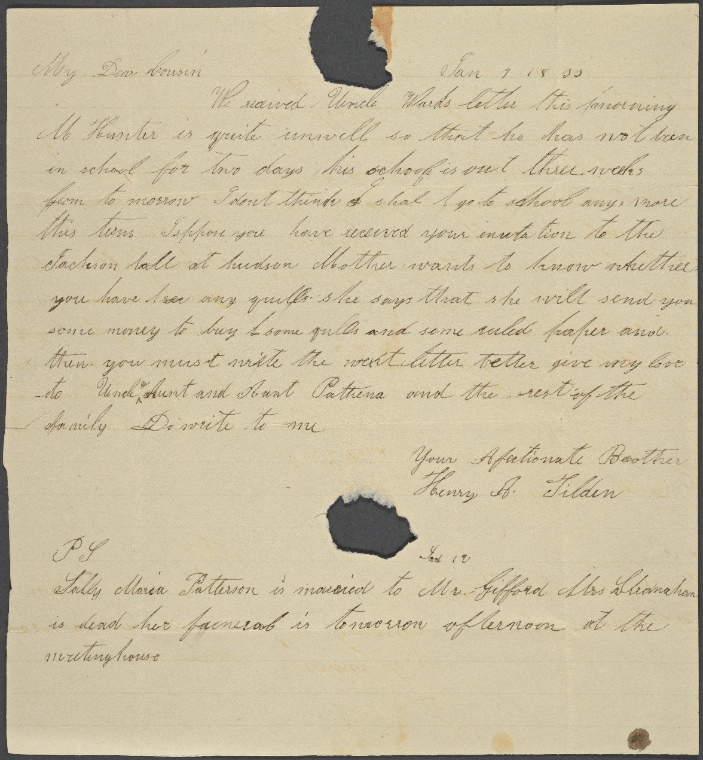 My Dear Cousin Jan 9 1833
We recived Uncle Wards letter this morning
M Hunter is quite unwell so that he has not been
in school for two days his school is out three weeks
from to morrow I dont think I shal go to school any more
this term I sppose you have received your invitation to the
Jackson ball at hudson Mother wants to know whether
you have any quills she says that she will send you
some money to buy some quills and some ruled paper and
then you must write the next letter better give my love
to Uncle Aunt and Aunt Pathena and the rest of the
family Do write to me
Your Afectionate Brother
Henry A. Tilden
P S Jan 12
Sally Maria Patterson is married to Mr. Gifford Mrs
is dead her funeral is tomorrow afternoon at the
meetinghouse